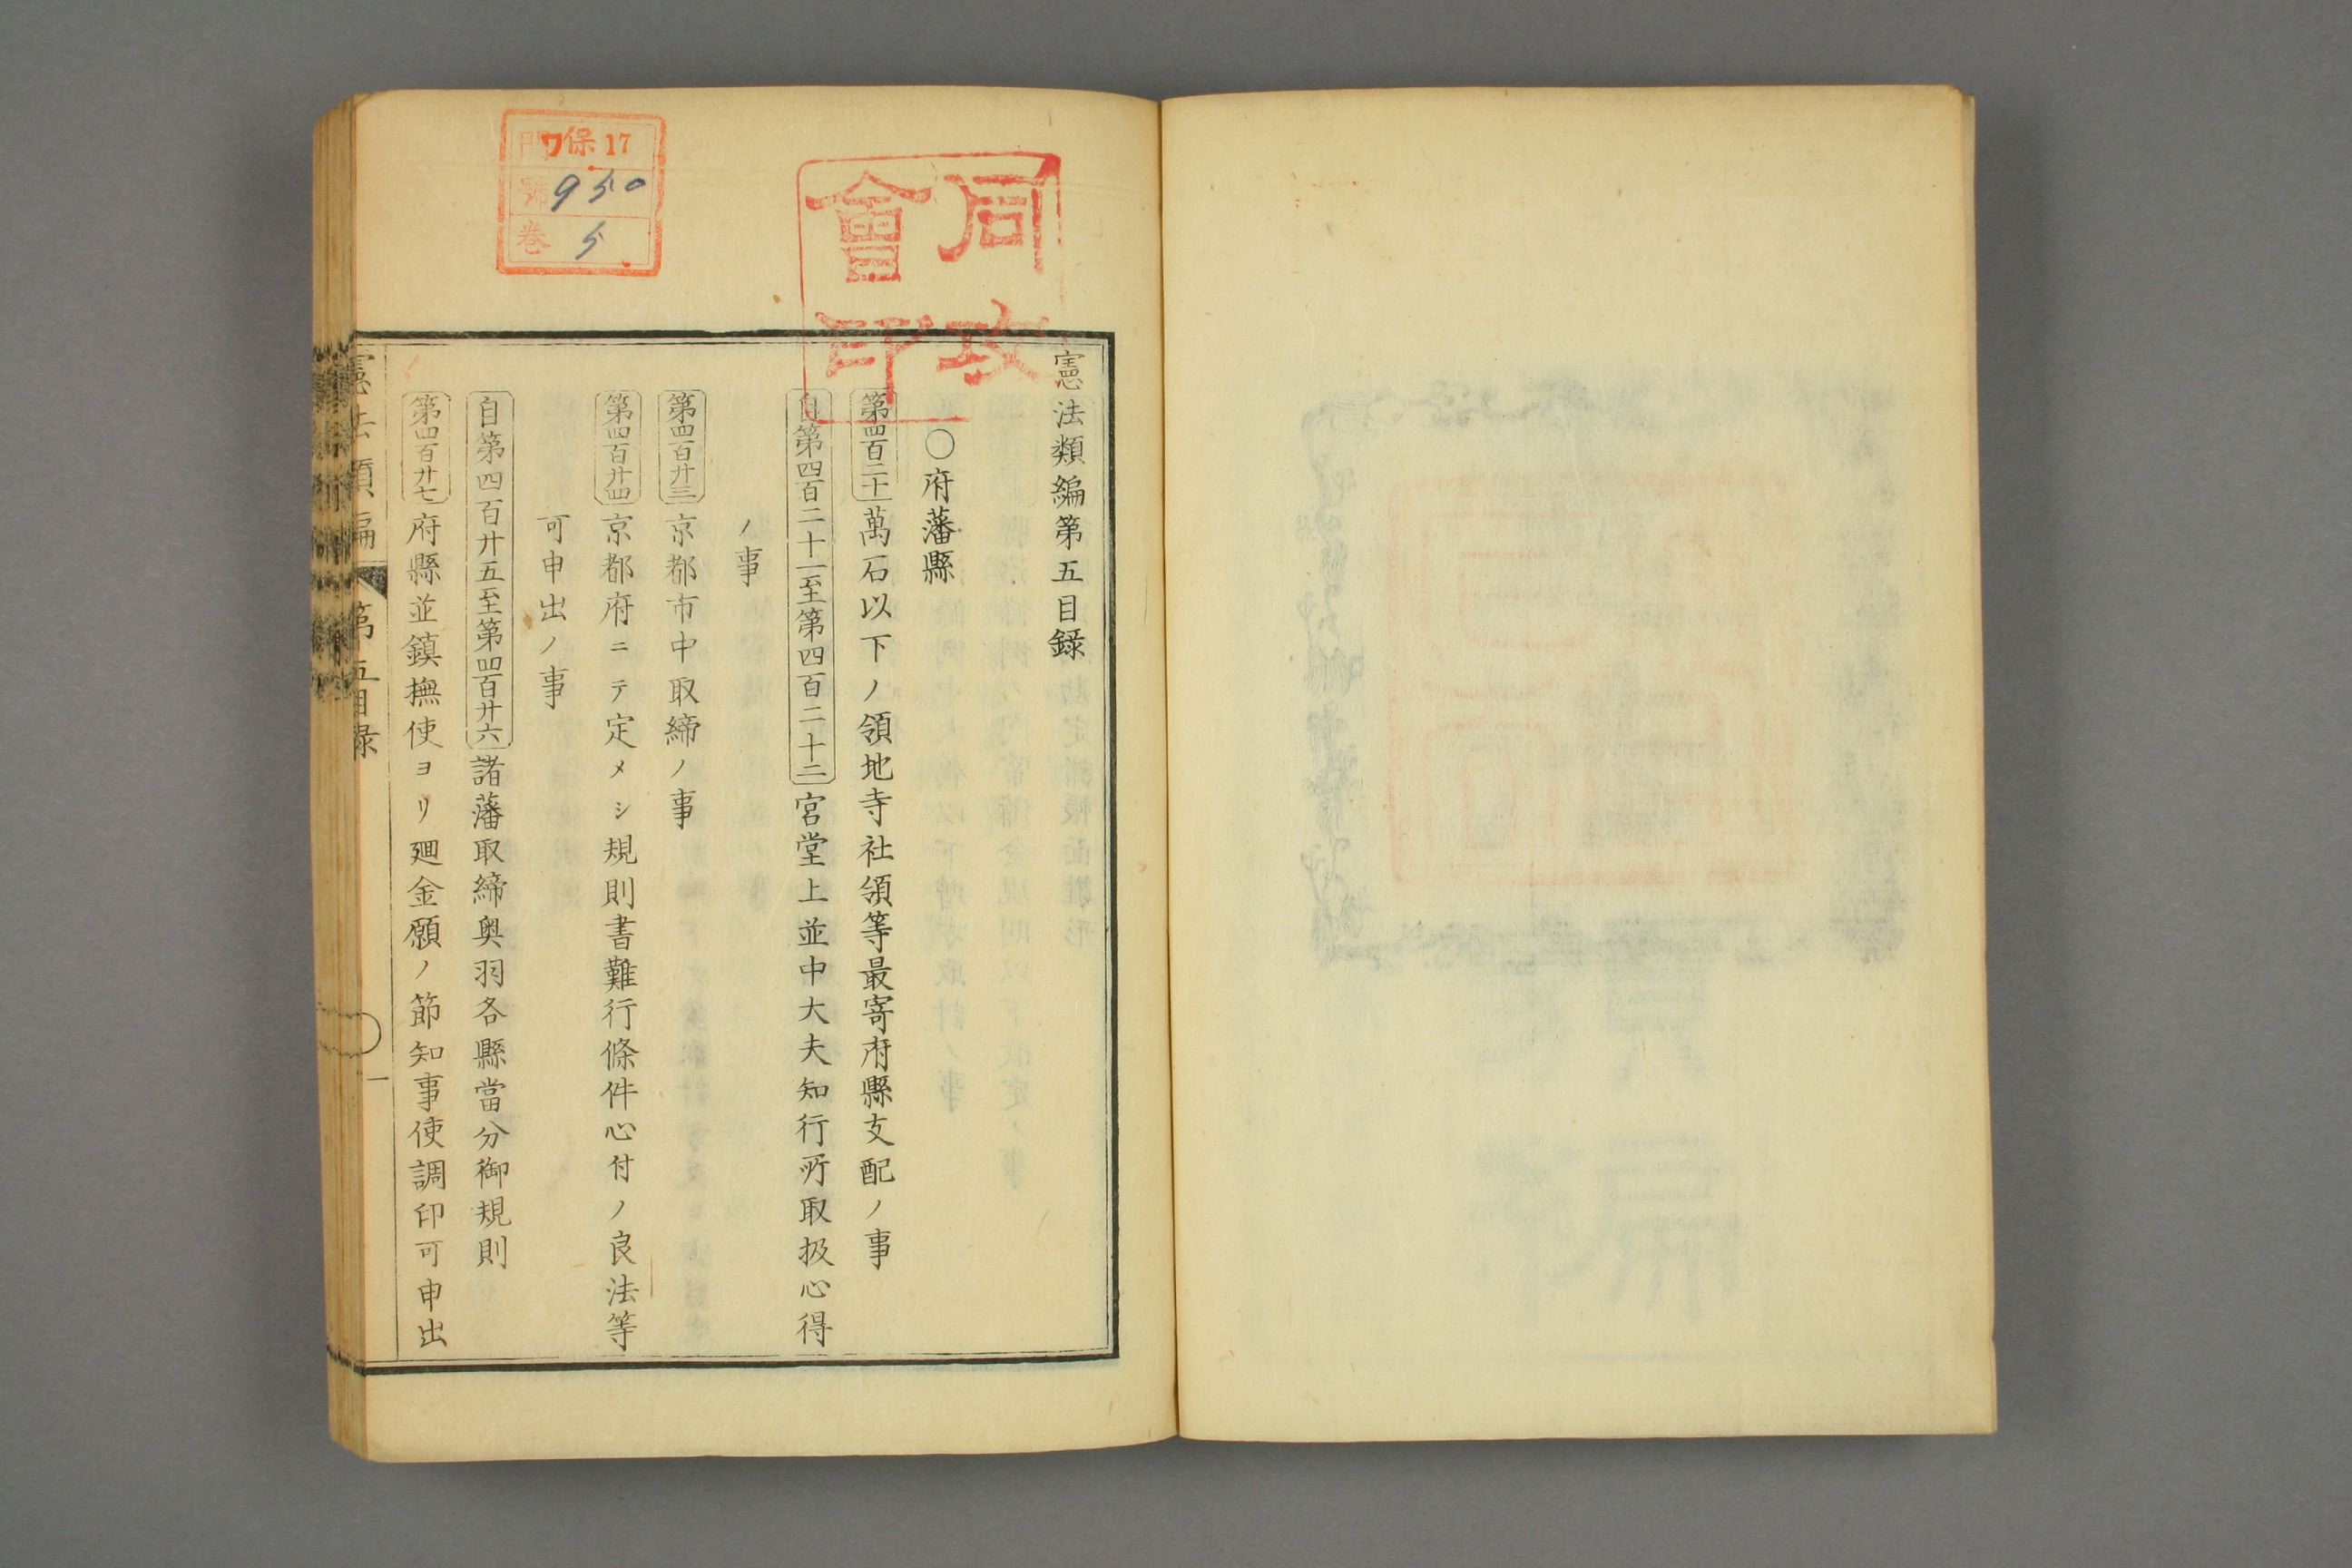 憲法類編第五目録
○府藩縣
第四百二十萬石以下ノ領地寺社領等最寄府縣支配ノ事
自第四百二十一至第四百二十二宮堂上並中大夫知行所取扱心得
ノ事
第四百廿三京都市中取締ノ事
第四百廿四京都府ニテ定メシ規則書難行條件心付ノ良法等
可申出ノ事
自第四百廿五至第四百廿六諸藩取締奥羽各縣當分御規則
第四百廿七府縣並鎮撫使ヨリ廻金願ノ節知事使調印可申出
憲法類編 第五目録 一
同攻
會印
門ワ保17
號950
巻5